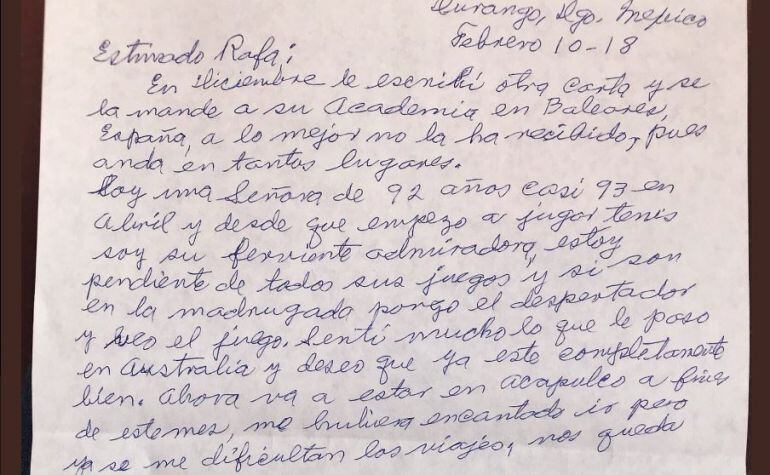 Durango, Dgo. Mexico
Febrero 10-18
Estimado Rafa;
En Diciembre le escribí otra carta y se
la mande a su Academia en Baleares,
España, a lo mejor no la ha recibido, pues
anda en tantos lugares.
Soy una Señora de 92 años casi 93 en
Abril y desde que empezo a jugar tenis
soy su ferviente admiradora, estoy
pendiente de todos sus juegos y si son
en la madrugada pongo el despertador
y veo el juego. Sentí mucho lo que le paso
en Australia y deseo que ya este completamente
bien. Ahora va a estar en Acapulco a fines
de este mes, me hubiera encantado ir pero
ya se me dificultan los viajes, nos queda